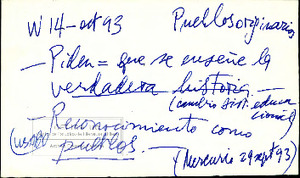 W 14-oct 93 Pueblos originarios
— Piden = que se enseñe la
verdadera historia
(cambio sist. educa
cional)
— Reconocimiento como
pueblos. —
(Mercurio 29 sept 93)